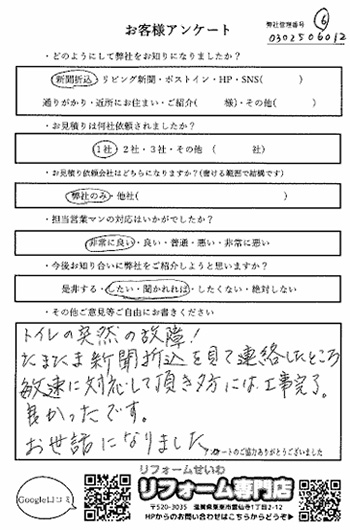 お客様アンケート
弊社管理番号 ⑥
0302506012
・どのようにして弊社をお知りになりましたか？
新聞折込・リビング新聞・ポストイン・HP・SNS( )
通りがかり・近所にお住まい・ご紹介( 様)・その他( )
・お見積りは何社依頼されましたか？
1社・2社・3社・その他 ( 社)
・お見積り依頼会社はどちらになりますか？(書ける範囲で結構です)
弊社のみ・他社( )
・担当営業マンの対応はいかがでしたか？
非常に良い・良い・普通・悪い・非常に悪い
・今後お知り合いに弊社をご紹介しようと思いますか？
是非する・したい・聞かれれば・したくない・絶対しない
・その他ご意見等ご自由にお書きください
トイレの突然の故障！
たまたま新聞折込を見て連絡したところ
敏速に対応して頂き夕方には、工事完了。
良かったです。
お世話になりました
アンケートのご協力ありがとうございました
Google口コミ
リフォームせいわ
リフォーム専門店
〒520-3035 滋賀県栗東市霊仙寺1丁目2-12
HPからのお問い合わせはこちらからどうぞ▶